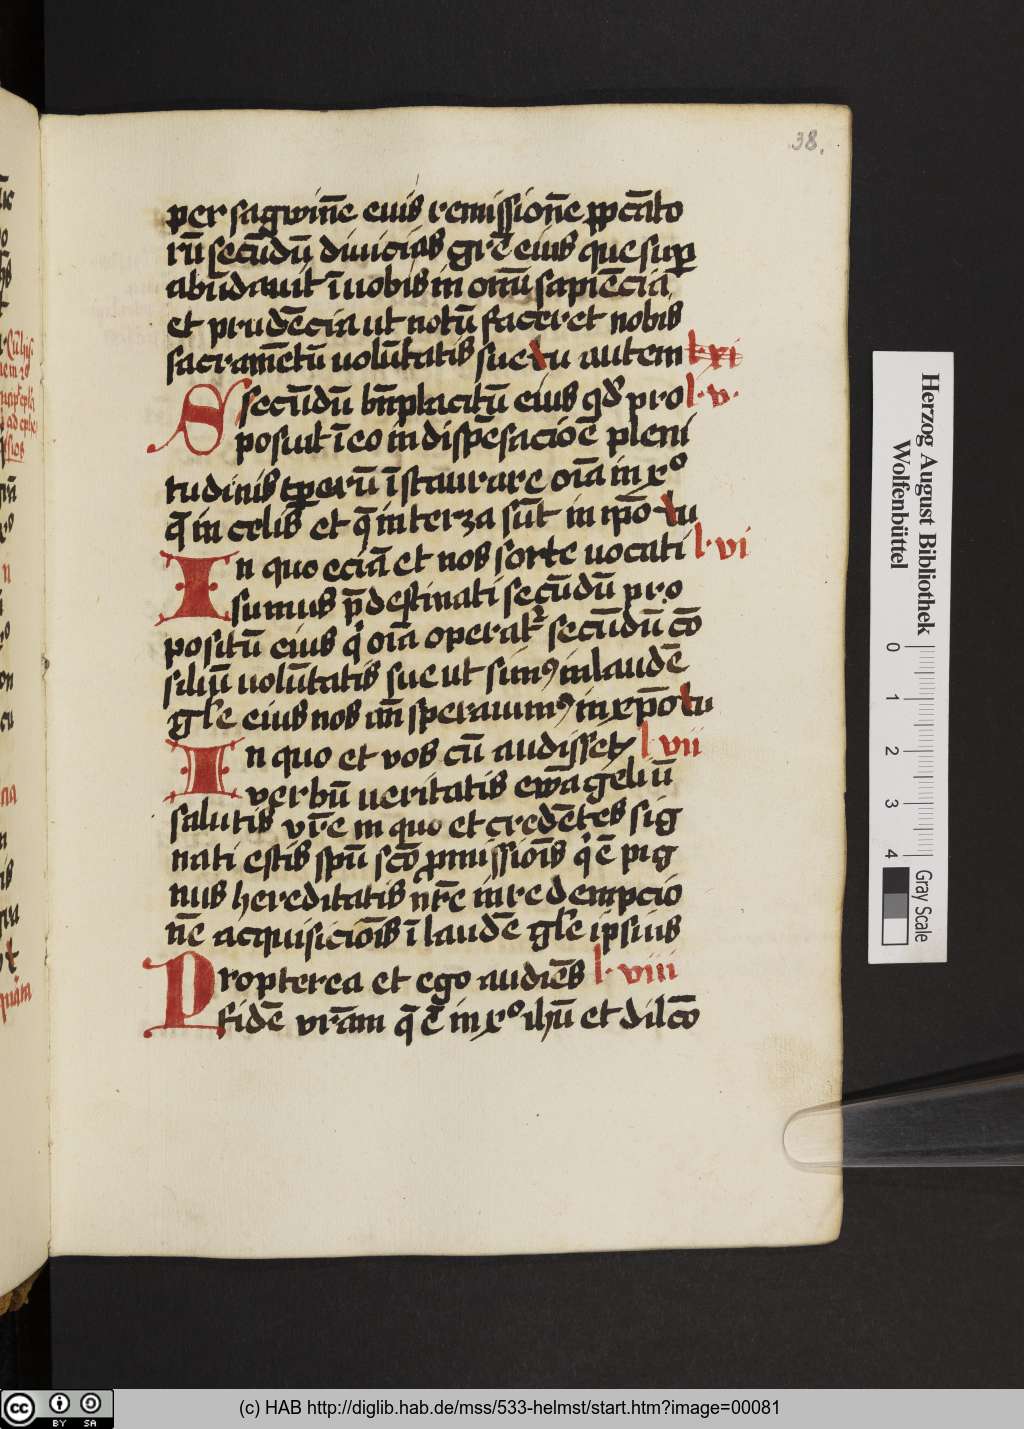 38.
per sagwinē euis remissionē ppcāto
rū secūdū diuicias grē eius que sup
abūdauit ī uobis in omī sapiēcia
et prudēcia ut notū faceret nobis
sacramētū uolūtatis sue tu autem l xi
S secūdū bn̄placitū eius qd pro l v.
posuit ī eo in dispēsacioē pleni
tudinis tperū īstaurare oīa in xº
q̄ in celis et q̄ in terza sūt in ipō tu
In quo eciā et nos sorte uocati l vi
sumus p̄destinati secūdū pro
positū eius q oīa operatr secūdū cō
siliū uolūtatis sue ut simꝰ in laudē
gle eius nos an̄ sperauimꝰ in xpō tu
In quo et vos cū audissetꝭ l vii
verbū ueritatis ewāgeliū
salutis vr̄e in quo et credētes sig
nati estis spū scō pmissiōis q ē pig
nus hereditatis nr̄e in redempcio
nē acquisiciōis ī laudē gle ipsius
Propterea et ego audiēs l viii
fidē vrām q̄ ē in xº ihū et dilcō
Herzog August Bibliothek
Wolfenbüttel
0 1 2 3 4
Gray Scale
cc BY SA
(c) HAB http://diglib.hab.de/mss/533-helmst/start.htm?image=00081